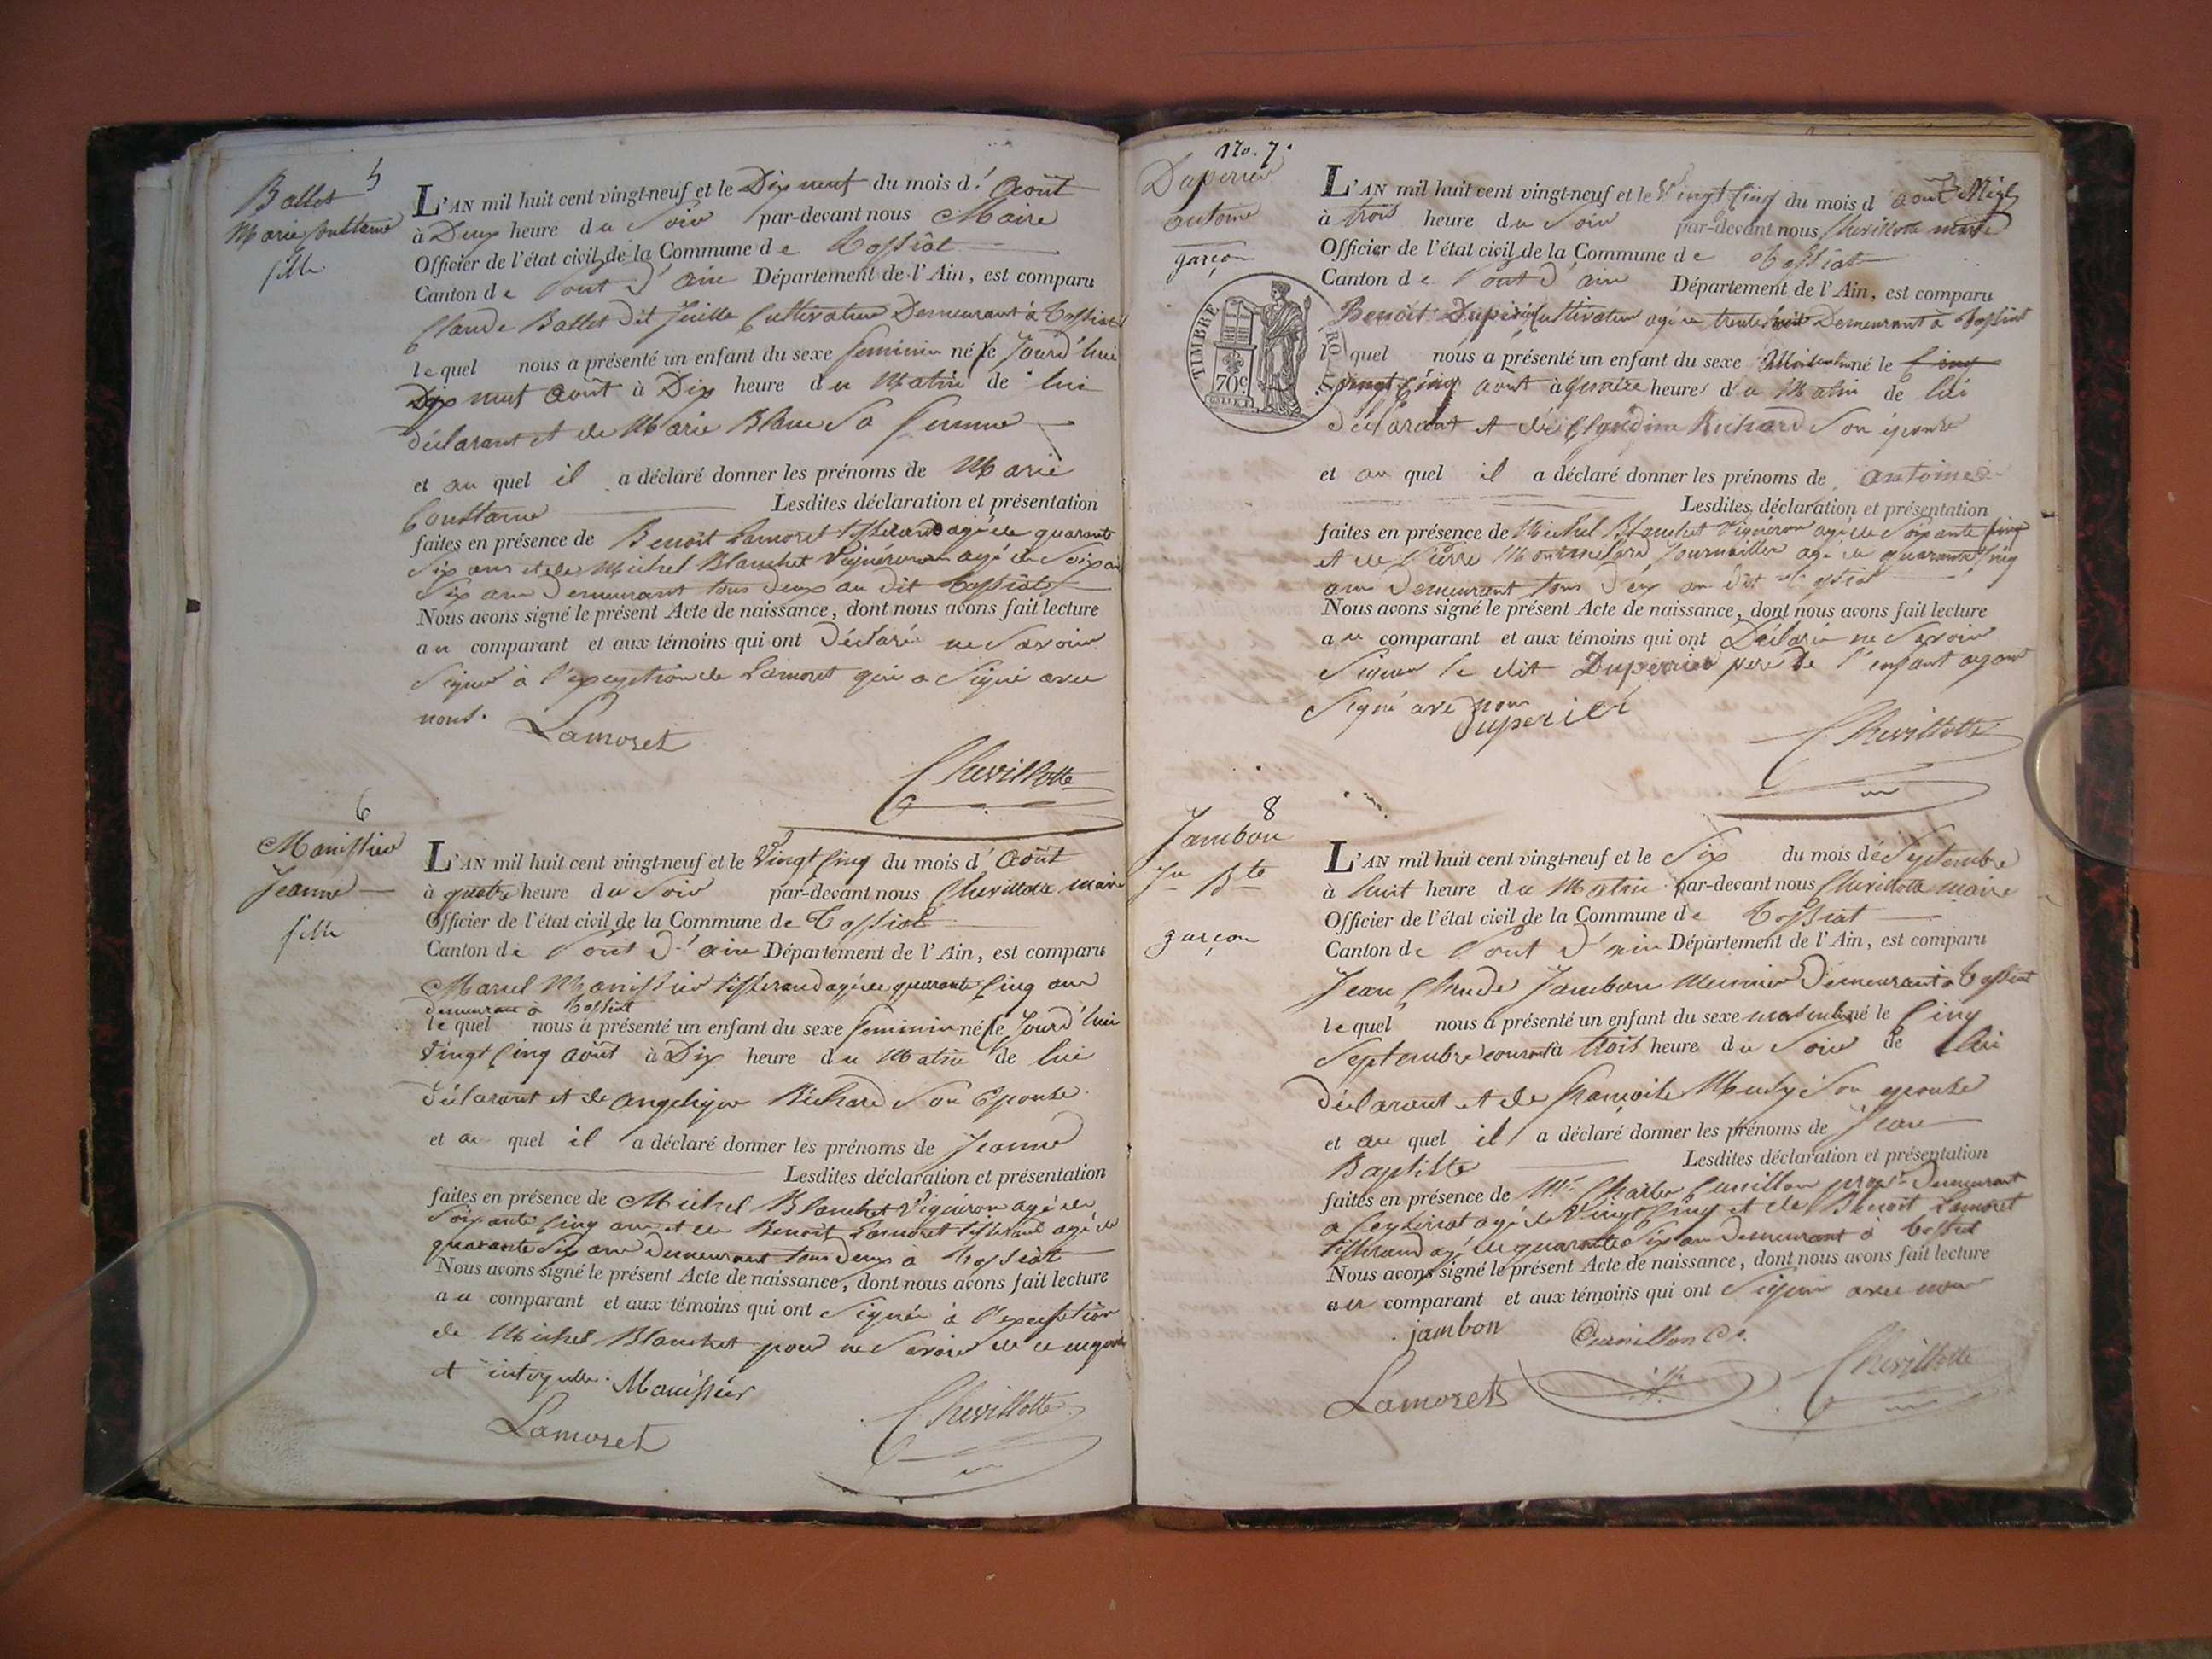 5
Ballet
Marie Constance
fille
L'AN mil huit cent vingt-neuf et le Dix neuf du mois d'Août
à Deux heure du Soir par-devant nous Maire
Officier de l'état civil de la Commune de Tossiat
Canton de Pont d'ain Département de l'Ain, est comparu
Claude Ballet dit Cultivateur Demeurant à Tossiat
lequel nous a présenté un enfant du sexe feminin né le Jourd'hui
Dix neuf Août à Dix heure du Matin de lui
déclarant et de Marie Blanc Sa femme
et au quel il a déclaré donner les prénoms de Marie
Constance Lesdites déclaration et présentation
faites en présence de Benoit Lamoret tisserand agé de quarante
Six ans et de Michel Blanchet Vigneron agé de Soixante
Six ans Demeurant tous deux au dit Tossiat
Nous avons signé le présent Acte de naissance, dont nous avons fait lecture
au comparant et aux témoins qui ont Déclaré ne Savoir
Signer à l'exception de Lamoret qui a Signé avec
nous.
Lamoret
Chevillotte
6
Manissier
Jeanne
fille
L'AN mil huit cent vingt-neuf et le Vingt Cinq du mois d'Août
à quatre heure du Soir par-devant nous Chevillotte maire
Officier de l'état civil de la Commune de Tossiat
Canton de Pont d'ain Département de l'Ain, est comparu
Marcel Manissier tisserand agé de quarante Cinq ans
demeurant à Tossiat
lequel nous a présenté un enfant du sexe feminin né le Jourd'hui
Vingt Cinq Août à Dix heure du Matin de lui
Déclarant et de Angelique Richard Son Epouse
et au quel il a déclaré donner les prénoms de Jeanne
Lesdites déclaration et présentation
faites en présence de Michel Blanchet Vigneron agé de
Soixante Cinq ans et de Benoit Lamoret tisserand agé de
quarante Six ans Demeurant tous deux a Tossiat
Nous avons signé le présent Acte de naissance, dont nous avons fait lecture
au comparant et aux témoins qui ont Signés à l'exception
de Michel Blanchet pour ne Savoir de ce enquis
et interpellé. Manissier
Lamoret
Chevillotte
No. 7.
Duperier
antoine
garçon
TIMBRE ROYAL
70c
L'AN mil huit cent vingt-neuf et le Vingt Cinq du mois d août
à trois heure du Soir par-devant nous Chevillotte maire
Officier de l'état civil de la Commune de Tossiat
Canton de Pont d'ain Département de l'Ain, est comparu
Benoit Duperier Cultivateur agé de trente Demeurant à Tossiat
lequel nous a présenté un enfant du sexe Masculin né le Cinq
vingt Cinq août à heures du Matin de lui
Déclarant et de Claudine Richard Son épouse
et au quel il a déclaré donner les prénoms de antoine
Lesdites déclaration et présentation
faites en présence de Michel Blanchet Vigneron agé de Soixante Cinq
et de Pierre Journallier agé de quarante Cinq
ans Demeurant tous Deux au dit Tossiat
Nous avons signé le présent Acte de naissance, dont nous avons fait lecture
au comparant et aux témoins qui ont Déclaré ne Savoir
Signer le dit Duperier pere de l'enfant ayant
Signé avec nous
Duperier
Chevillotte
8
Jambon
Jn Bte
garçon
L'AN mil huit cent vingt-neuf et le Six du mois de Septembre
à huit heure du Matin par-devant nous Chevillotte maire
Officier de l'état civil de la Commune de Tossiat
Canton de Pont d'ain Département de l'Ain, est comparu
Jean Claude Jambon Meunier Demeurant à Tossiat
lequel nous a présenté un enfant du sexe masculin né le Cinq
Septembre courant à trois heure du Soir de lui
Déclarant et de françoise Son epouse
et au quel il a déclaré donner les prénoms de Jean
Baptiste Lesdites déclaration et présentation
faites en présence de Mr. Charles propre. Demeurant
a agé de Vingt Cinq et de Benoit Lamoret
tisserand agé de quarante Six ans Demeurant à Tossiat
Nous avons signé le présent Acte de naissance, dont nous avons fait lecture
au comparant et aux témoins qui ont Signé avec nous
jambon
Lamoret
Chevillotte